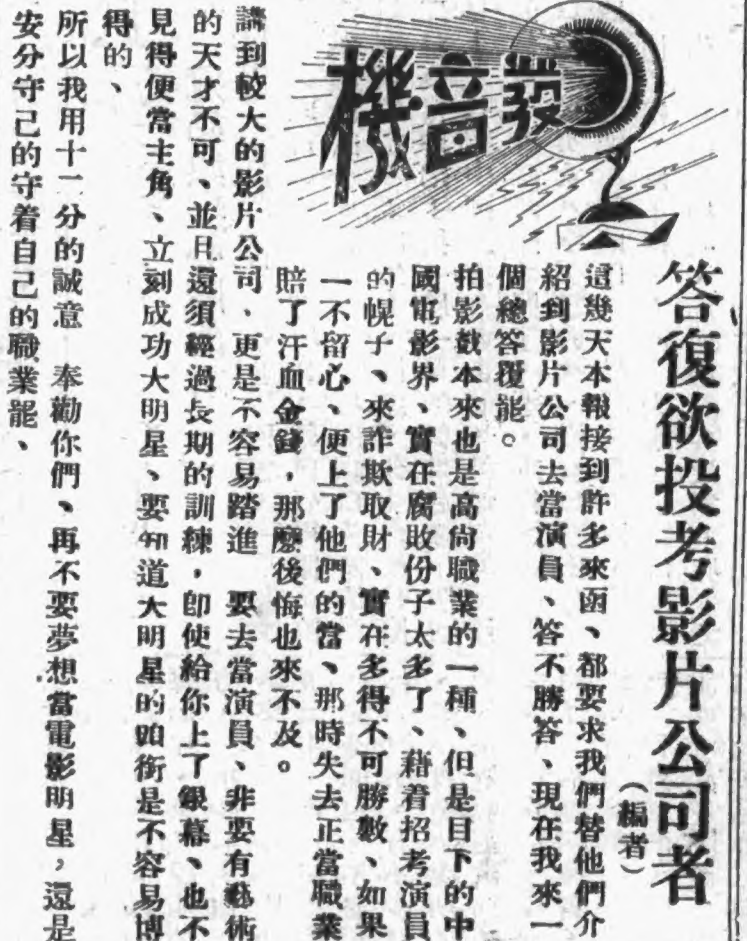 發音機
答復欲投考影片公司者
（編者）
這幾天本報接到許多來函、都要求我們替他們介
紹到影片公司去當演員、答不勝答、現在我來一
個總答覆罷。
拍影戲本來也是高尙職業的一種、但是目下的中
國電影界、實在腐敗份子太多了、藉着招考演員
的幌子、來詐欺取財、實在多得不可勝數、如果
一不留心、便上了他們的當、那時失去正當職業
賠了汗血金錢，那麽後悔也來不及。
講到較大的影片公司、更是不容易踏進　要去當演員、非要有藝術
的天才不可、並且還須經過長期的訓練，卽使給你上了銀幕、也不
見得便當主角、立刻成功大明星、要知道大明星的頭銜是不容易博
得的、
所以我用十二分的誠意　奉勸你們、再不要夢想當電影明星，還是
安分守己的守着自己的職業罷、